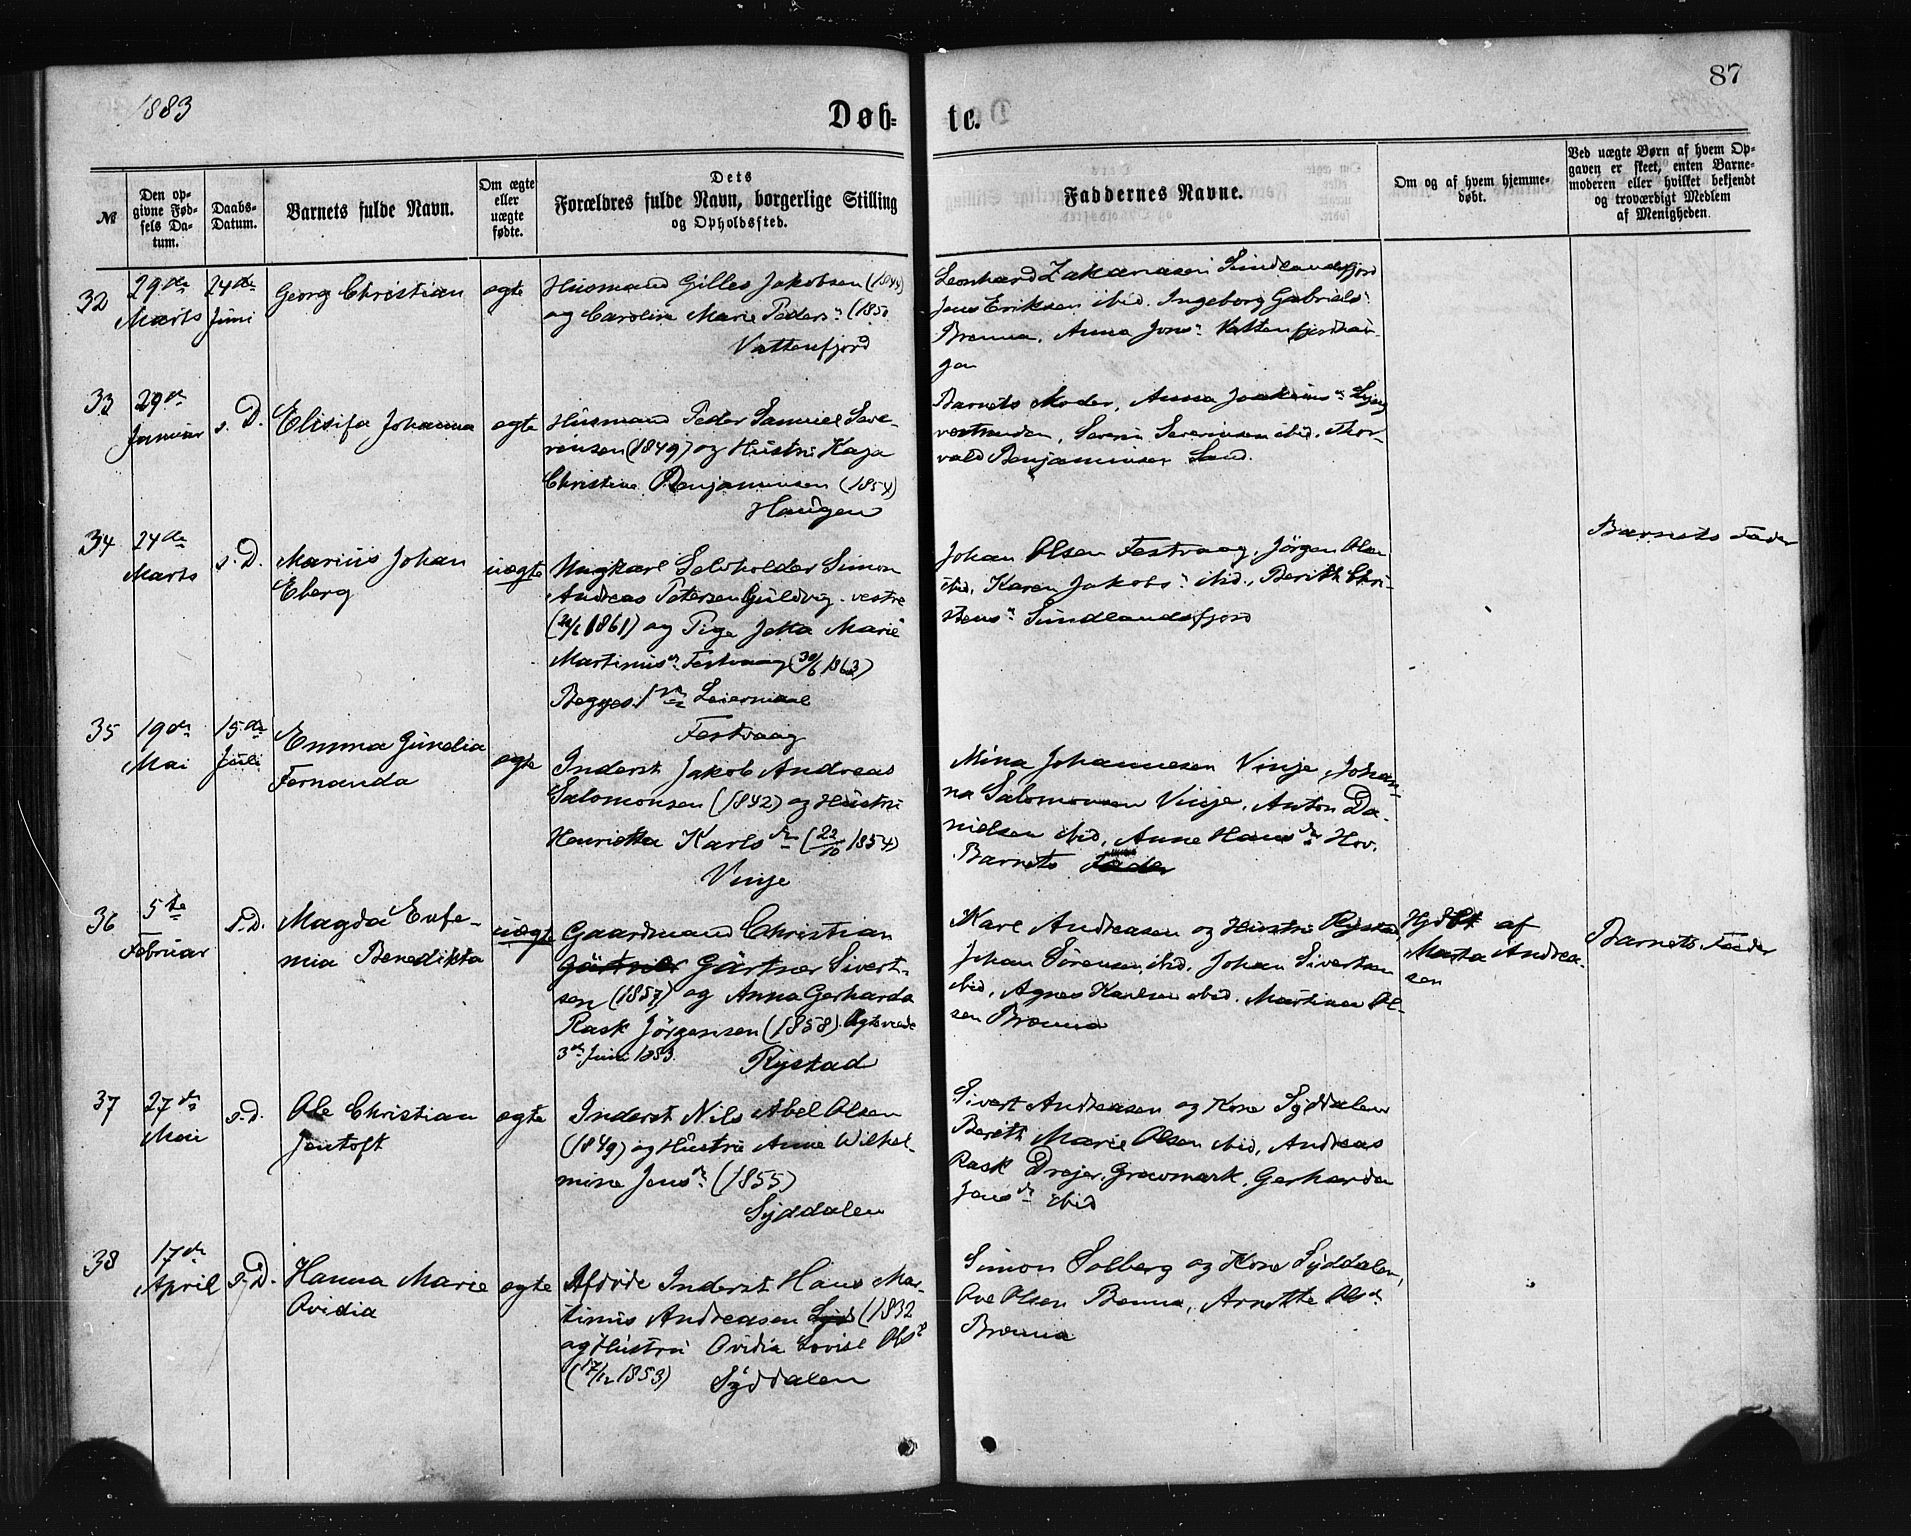 1883
Døb-
te.
87
№
Den op-
givne Fød-
sels Da-
tum.
Daabs-
Datum.
Barnets fulde Navn.
Om ægte
eller
uægte
fødte.
Dets
Forældres fulde Navn, borgerlige Stilling
og Opholdssted.
Faddernes Navne.
Om og af hvem hjemme-
døbt.
Ved uægte Børn af hvem Op-
gaven er skeet, enten Barne-
moderen eller hvilket bekjendt
og troværdigt Medlem
af Menigheden.
32
29de
Marts
24de
Juni
Georg Christian
ægte
Husmand Gilles Jakobsen (1844)
og Caroline Marie Peders. (1850
Vattenfjord
Leonhard Zakariasen Sundlandsfjord
Jens Eriksen ibid. Ingeborg Gabriels.
Brenna, Anna Jons. Vattenfjordhau-
gen
33
29de
Januar
s. D.
Elisifa Johanna
ægte
Husmand Peder Samuel Seve-
rinsen (1849) og Hustru Kaja
Christine Benjaminsen (1854)
Haugen
Barnets Moder, Anna Joakims.
Severin Severinsen ibid. Thor-
vald Benjaminsen Sand.
34
24de
Marts
s. D.
Marius Johan
Eberg
uægte
Ungkarl Selvholder Simon
Andreas Petersen Guldvig. vestre
1861) og Pige Jetta Marie
Martinusdr. Festvaag (30/6 1863)
Begges 1ste Leiermaal
Festvaag
Johan Olsen Festvaag, Jörgen Olsen
ibid, Karen Jakobs. ibid., Berith Chri-
stens. Sundlandsfjord
Barnets Fader
35
19de
Mai
15de
Juli
Emma Gunelia
Fernanda
ægte
Inderst Jakob Andreas
Salomonsen (1842) og Hustru
Henrietta Karlsdr. (22/10 1854)
Vinje
Mina Johannesen Vinje, Johan-
na Salomonsen Vinje, Anton Da-
nielsen ibid, Anne Hansdr. Hov.
Barnets Fader
36
5te
Februar
s.D.
Magda Eufe-
mia Benedikta
uægte
Gaardmand Christian
Gärtner Gärtner Sivert-
sen (1857) og Anna Gerharda
Rask Jörgensen (1858). Ægteviede
3de Juni 1883.
Rystad
Karl Andreasen og Hustru Rystad,
Johan Sörensen ibid. Johan Sivertsen
ibid, Agnes Karlsen ibid. Martines Ol-
sen Brenna
Hjdbt af
Marta Andrea-
sen
Barnets Fader
37
27de
Mai
s.D.
Ole Christian
Jentoft
ægte
Inderst Nils Abel Olsen
(1849) og Hustru Anne Wilhel-
mine Jensdr. (1855)
Syddalen
Sivert Andreasen og Kone Syddalen
Berith Marie Olsen ibid, Andreas
Rask Drejer, Gravmark, Gerharda
Jensdr. ibid
38
17de
April
s.D.
Hanna Marie
Ovidia
ægte
Afdøde Inderst Hans Mar-
tinus Andreasen Syd (1832
og Hustru Ovidia Lovise Olsd.
(17/12 1853) Syddalen
Simon Solberg og Kone Syddalen,
Ove Olsen Brenna, Arnette Olsdr.
Brenna